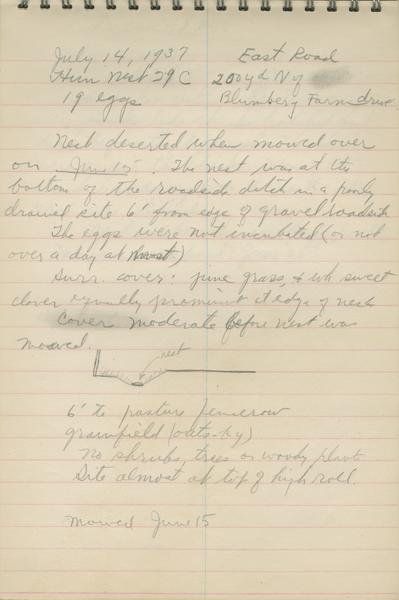 July 14, 1937 East Road
Hun Nest 29 C 200 yd N of
19 eggs Blumberg Farm drive
Nest deserted when mowed over
on June 15. The nest was at the
bottom of the roadside ditch in a poorly
drained site 6' from edge of gravel roadside
The eggs were not incubated (or not
over a day at most)
Surr. cover: June grass, & wh sweet
clover equally prominent at edge of nest
Cover moderate before nest was
mowed.
nest
6' to pasture fencerow
grainfield (oats-hy)
No shrubs, trees or woody plants
Site almost at top of high roll.
Mowed June 15